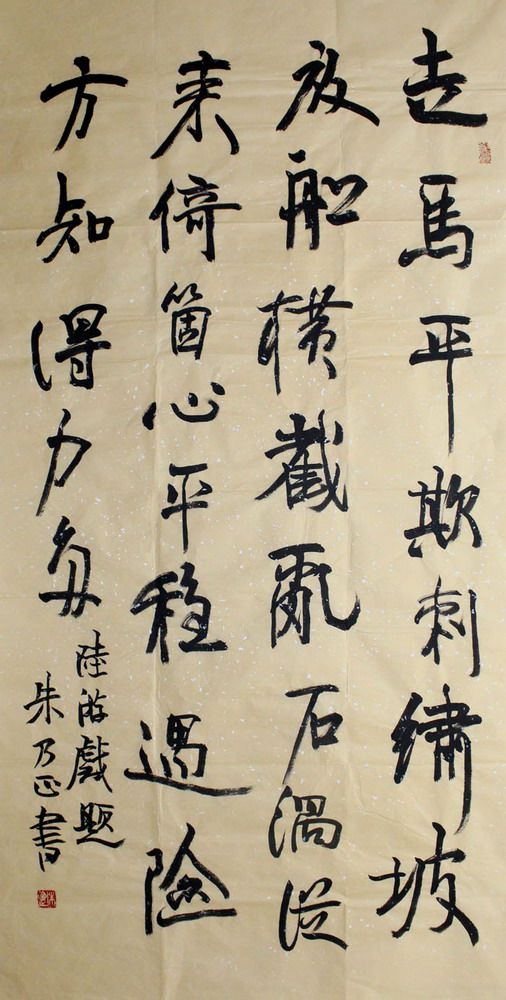 走馬平欺刺繡坡
放船橫截亂石渦從
來倚箇心平穩遇險
方知得力多
陸游戲題
朱乃正書